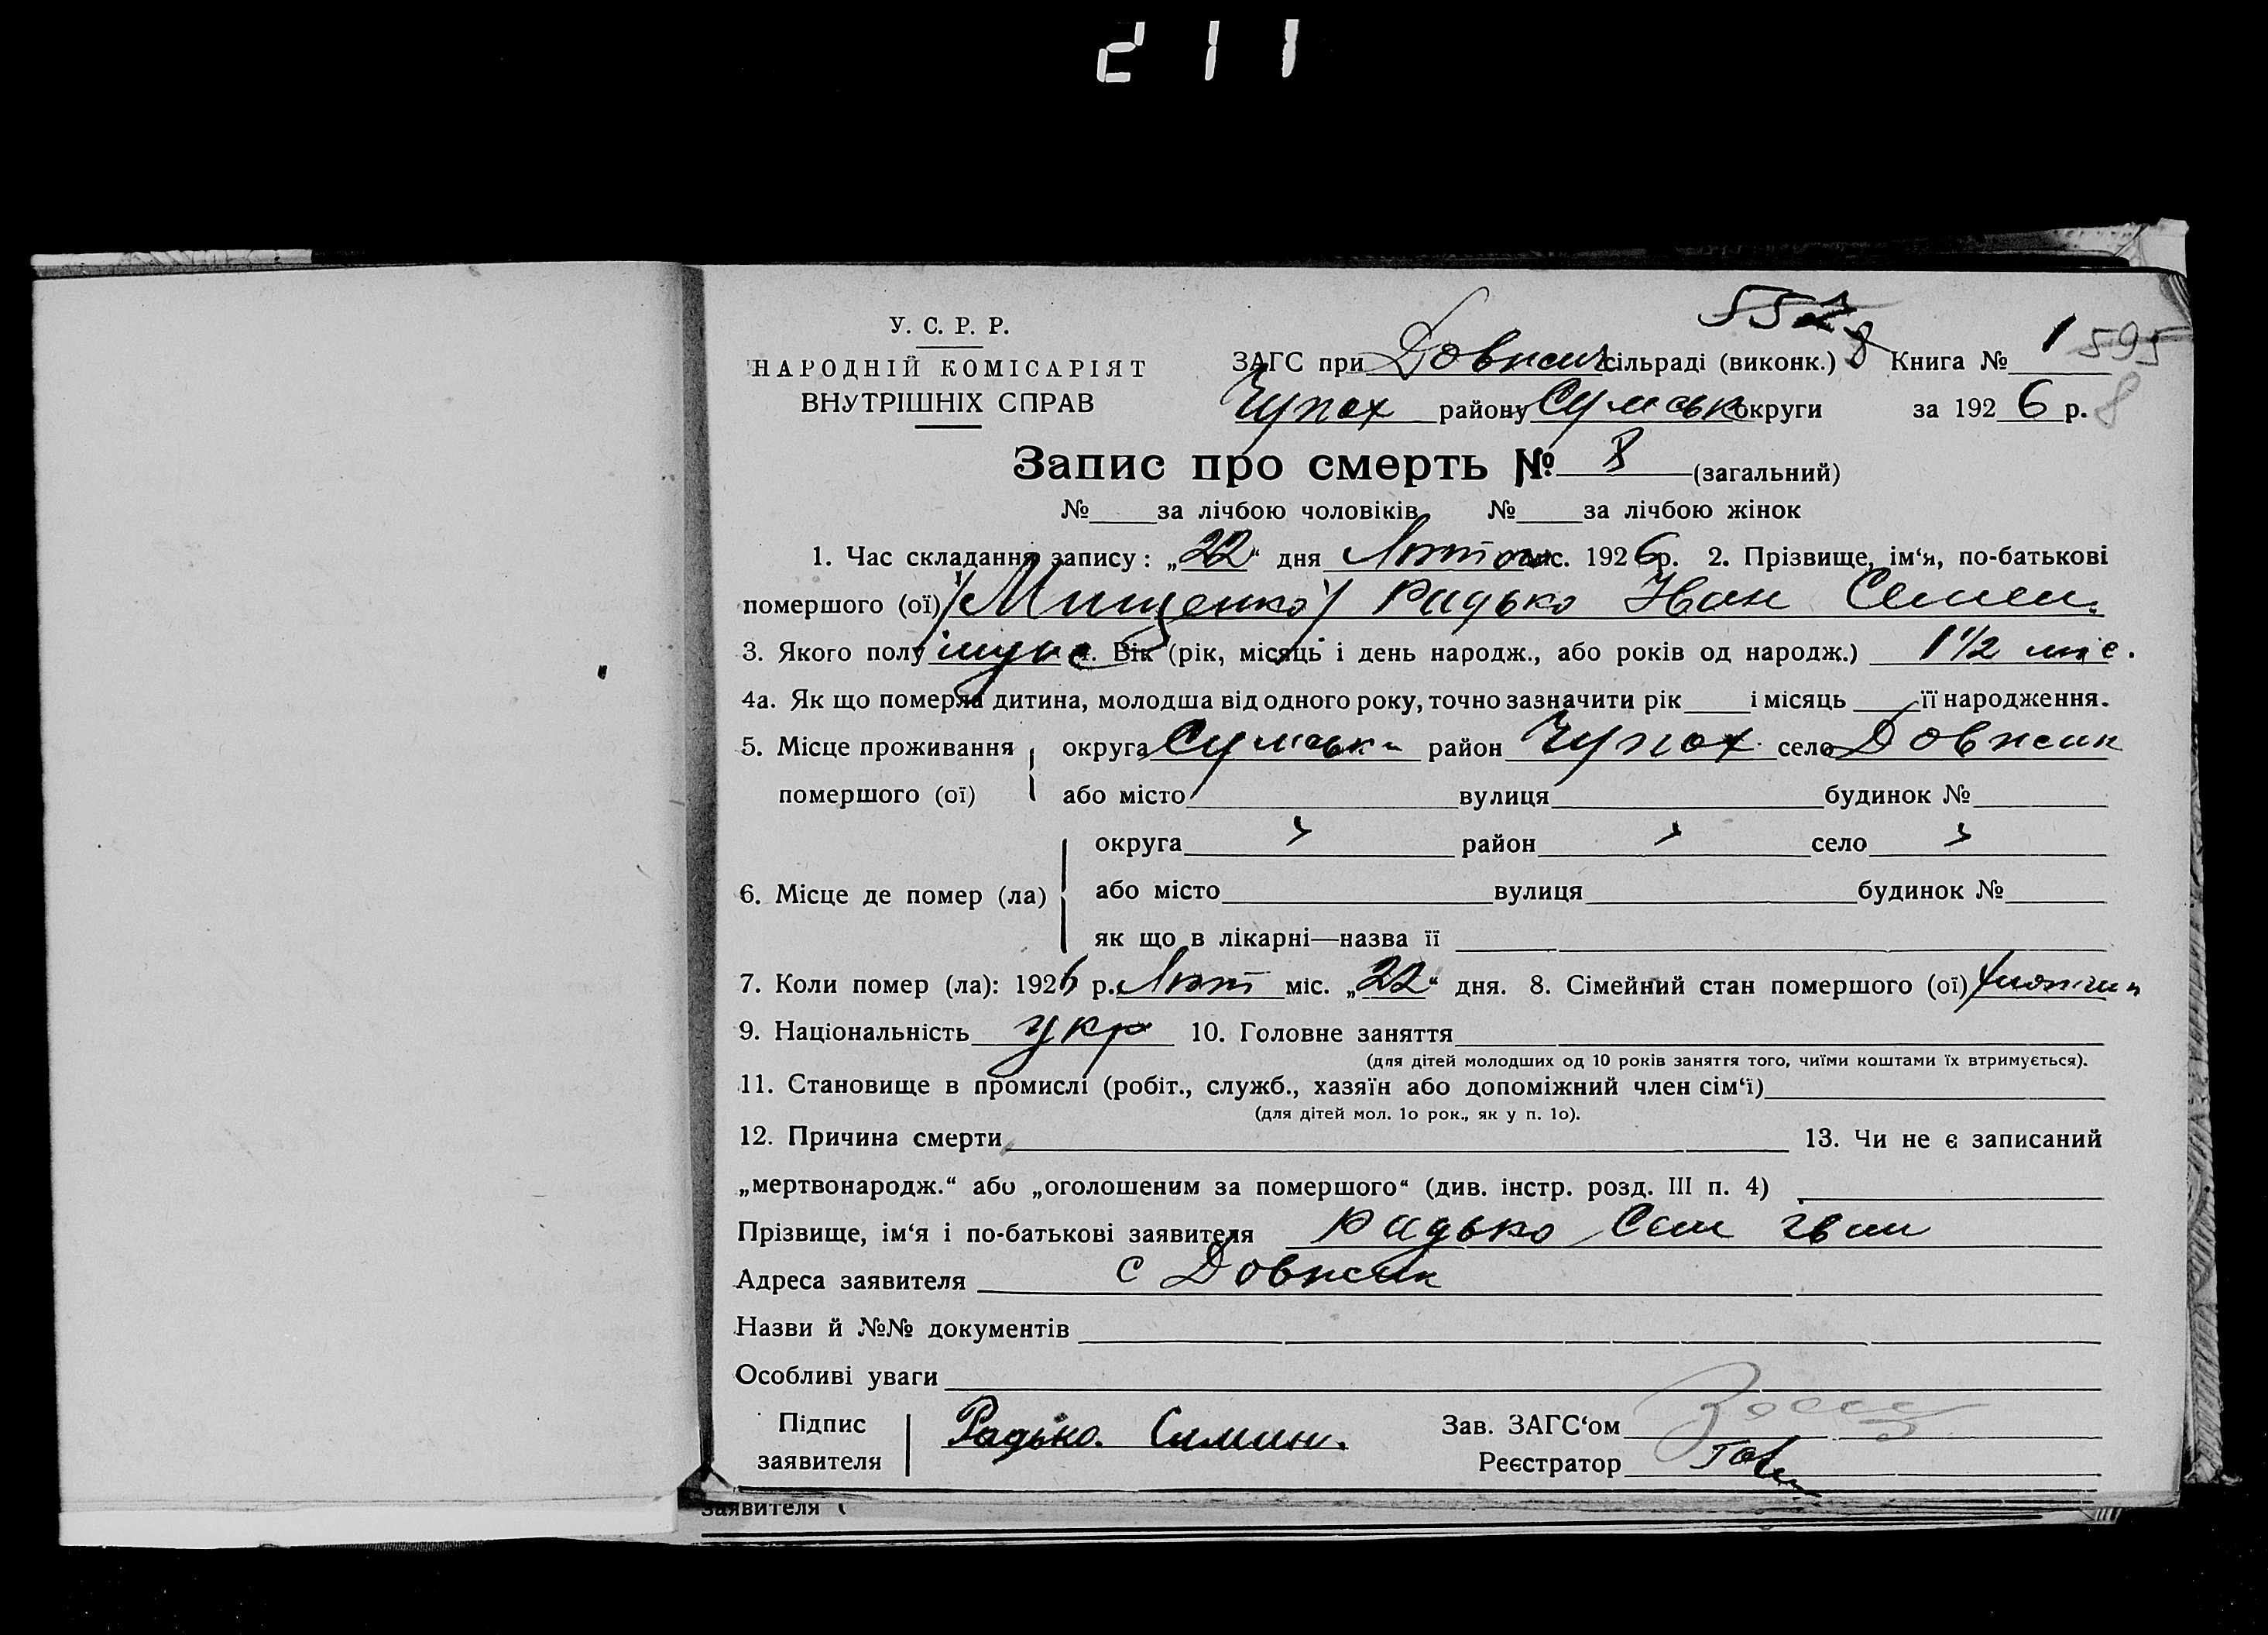 211
552 8 595
У. С. Р. Р.
НАРОДНІЙ КОМІСАРІЯТ
ВНУТРІШНІХ СПРАВ
ЗАГС при Довжик сільраді (виконк.) 8 Книга № 1
Чупах району Сумськ округи за 1926 р. 8
Запис про смерть № 8 (загальний)
№ за лічбою чоловіків № за лічбою жінок
1. Час складання запису: „22“ дня Лютого міс. 1926 р. 2. Прізвище, ім‘я, по-батькові
помершого (ої) /Мищенко/ Радько Іван Семен.
3. Якого полу муж 4. Вік (рік, місяць і день народж., або років од народж.) 1 1/2 міс.
4а. Як що померла дитина, молодша від одного року, точно зазначити рік і місяць її народження.
5. Місце проживання округа Сумськ район Чупах село Довжик
помершого (ої) або місто вулиця будинок №
округа район село
6. Місце де помер (ла) або місто вулиця будинок №
як що в лікарні—назва її
7. Коли помер (ла): 1926 р. Лют міс. „22“ дня. 8. Сімейний стан помершого (ої)
9. Національність укр 10. Головне заняття
(для дітей молодших од 10 років заняття того, чиїми коштами їх втримується).
11. Становище в промислі (робіт., служб., хазяїн або допоміжний член сім‘ї)
(для дітей мол. 1о рок., як у п. 1о).
12. Причина смерти 13. Чи не є записаний
„мертвонародж.“ або „оголошеним за помершого“ (див. інстр. розд. III п. 4)
Прізвище, ім‘я і по-батькові заявителя Радько Сем Іван
Адреса заявителя с Довжик
Назви й №№ документів
Особливі уваги
Підпис заявителя Радько. Симин.
Зав. ЗАГС‘ом
Реєстратор
заявителя (